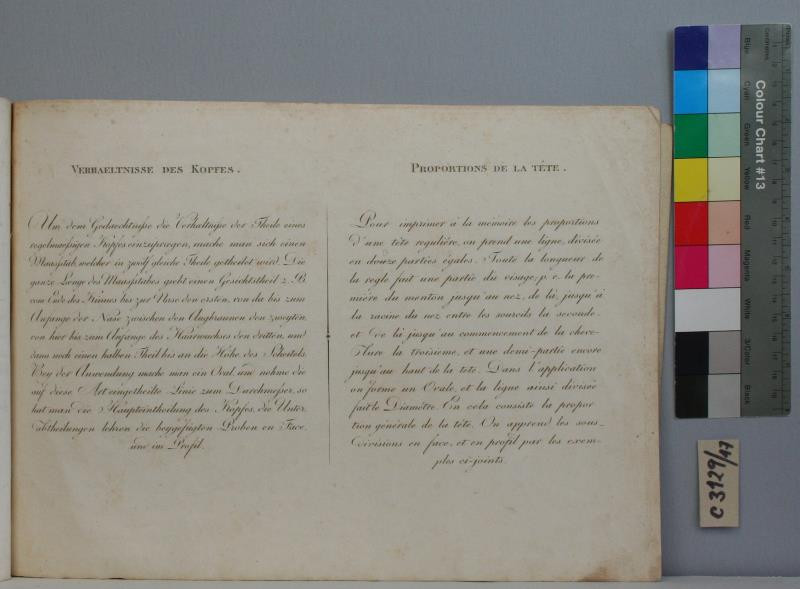 VERHAELTNISSE DES KOPFES.
Um dem Gedaechtniße die Verhältniße der Theile eines
regelmaeßigen Kopfes einzupraegen, mache man sich einen
Maasstab, welcher in zwölf gleiche Theile getheilet wird. Die
ganze Laenge des Maasstabes giebt einen Gesichtstheil z. B.
vom Ende des Kinnes bis zur Nase den ersten, von da bis zum
Anfange der Nase zwischen den Augbraunen den zweyten,
von hier bis zum Anfange des Haarwuchses den dritten, und
dann noch einen halben Theil bis an die Höhe des Scheitels.
Bey der Anwendung mache man ein Oval, und nehme die
auf diese Art eingetheilte Linie zum Durchmeßer, so
hat man die Haupteintheilung des Kopfes, die Unter
abtheilungen lehren die beygefügten Proben en Face
und im Profil.
PROPORTIONS DE LA TÊTE.
Pour imprimer à la mémoire les proportions
d'une tête regulière, on prend une ligne, divisée
en douze parties égales. Toute la longueur de
la regle fait une partie du visage, p. e. la pre-
mière du menton jusqu'au nez, de là, jusqu'à
la racine du nez entre les sourcils la seconde,
et de là jusqu'au commencement de la cheve-
lure la troisieme, et une demi-partie encore
jusqu'au haut de la tête. Dans l'application
on forme un Ovale, et la ligne ainsi divisée
fait le Diamètre. En cela consiste la propor
tion générale de la tête. On apprend les sous-
divisions en face, et en profil par les exem-
ples ci-joints.
Blue
Cyan
Green
Yellow
Red
Magenta
White
3/Color
Black
Centimetres
Colour Chart #13
C 3129/17